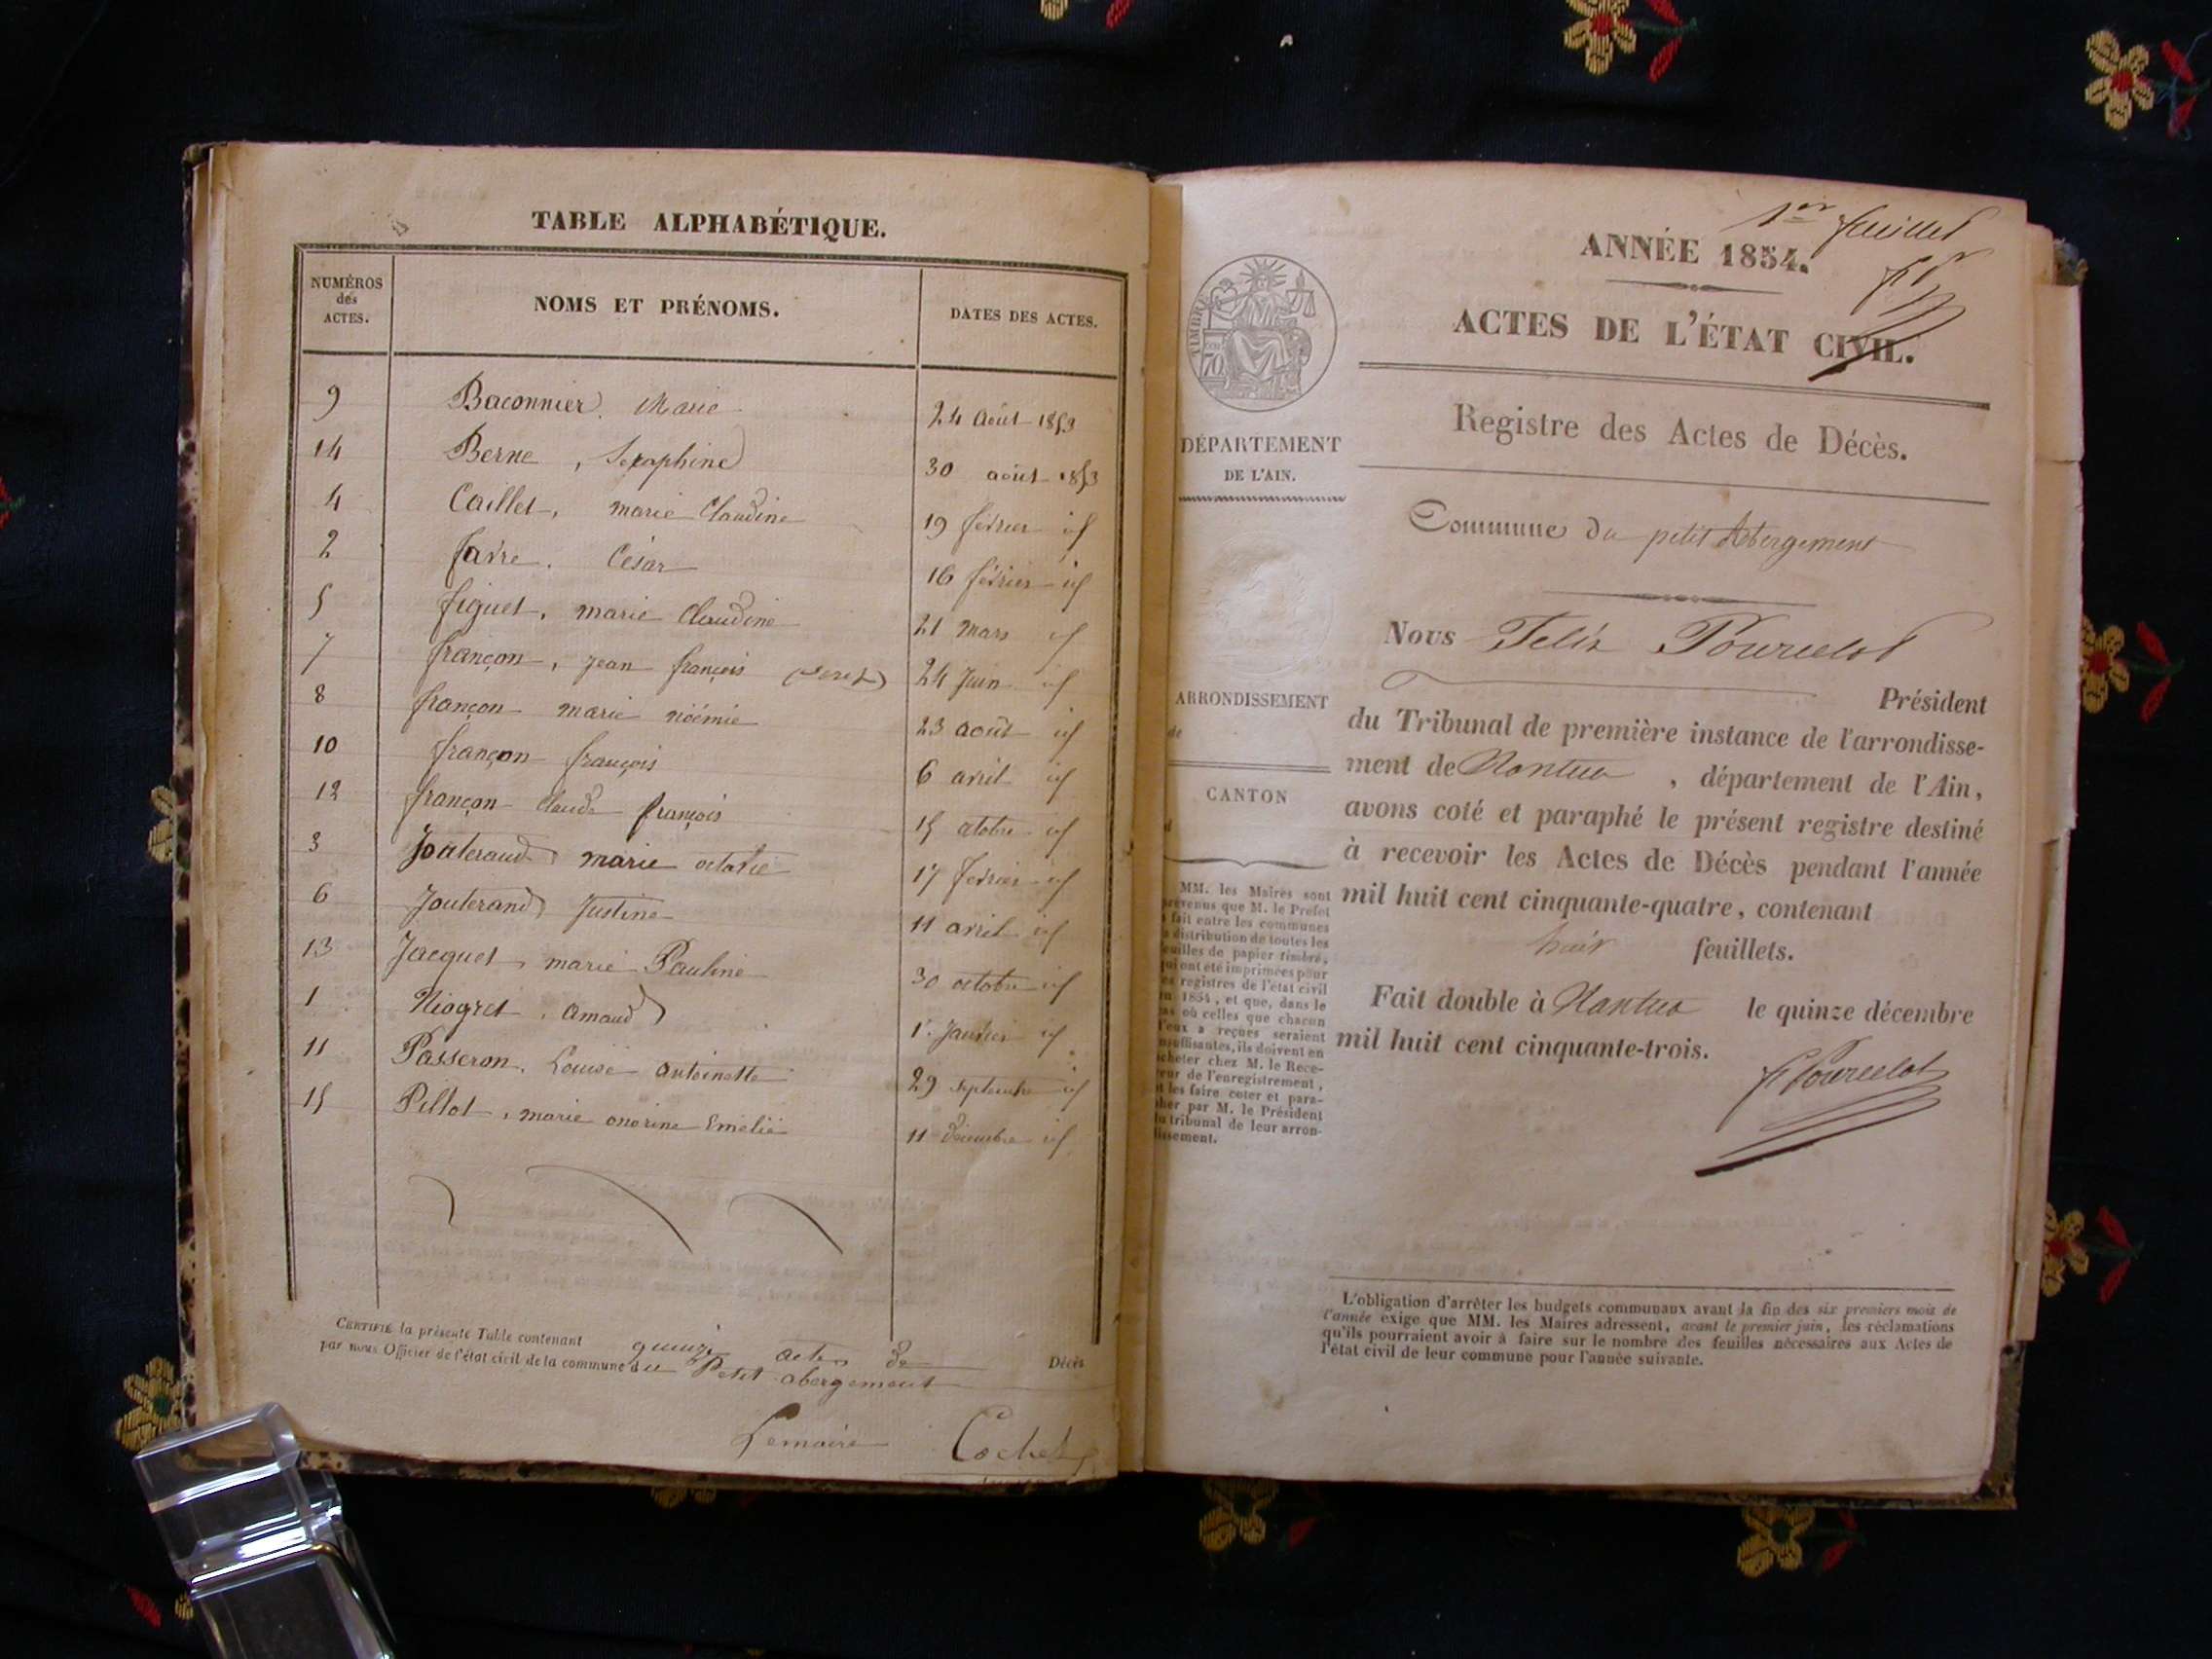 TABLE ALPHABÉTIQUE.
NUMÉROS des ACTES.
NOMS ET PRÉNOMS.
DATES DES ACTES.
9 Baconnier, Marie 24 Août 1853
14 Berne, Séraphine 30 août 1853
4 Caillet, marie Claudine 19 février id
2 favre, César 16 février id
5 figuet, marie Claudine 21 mars id
7 françon, jean françois 24 Juin id
8 françon marie nöémie 23 août id
10 françon françois 6 avril id
12 françon Claude françois 15 octobre id
3 Jouterand marie octavie 17 février id
6 Jouterand Justine 11 avril id
13 Jacquet, marie Pauline 30 octobre id
1 Niogret, amand 1r. Janvier id
11 Passeron, Louise antoinette 29 septembre id
15 Pillot, marie onorine Emélie 11 décembre id
CERTIFIÉ la présente Table contenant quinze actes de Décès
par nous Officier de l'état civil de la commune du Petit abergement
Lemaire Cochet
1er feuillet
ANNÉE 1854.
ACTES DE L'ÉTAT CIVIL.
Registre des Actes de Décès.
TIMBRE
70
DÉPARTEMENT
DE L'AIN.
Commune du petit Abergement
Nous Félix Pourcelot
Président
du Tribunal de première instance de l'arrondisse-
ment de Nantua, département de l'Ain,
avons coté et paraphé le présent registre destiné
à recevoir les Actes de Décès pendant l'année
mil huit cent cinquante-quatre, contenant
huit feuillets.
Fait double à Nantua le quinze décembre
mil huit cent cinquante-trois.
F Pourcelot
ARRONDISSEMENT
de
CANTON
d
MM. les Maires sont
prévenus que M. le Préfet
a fait entre les communes
la distribution de toutes les
feuilles de papier timbré,
qui ont été imprimées pour
les registres de l'état civil
en 1854, et que, dans le
cas où celles que chacun
d'eux a reçues seraient
insuffisantes, ils doivent en
acheter chez M. le Rece-
veur de l'enregistrement,
et les faire coter et para-
pher par M. le Président
du tribunal de leur arron-
dissement.
L'obligation d'arrêter les budgets communaux avant la fin des six premiers mois de
l'année exige que MM. les Maires adressent, avant le premier juin, les réclamations
qu'ils pourraient avoir à faire sur le nombre des feuilles nécessaires aux Actes de
l'état civil de leur commune pour l'année suivante.